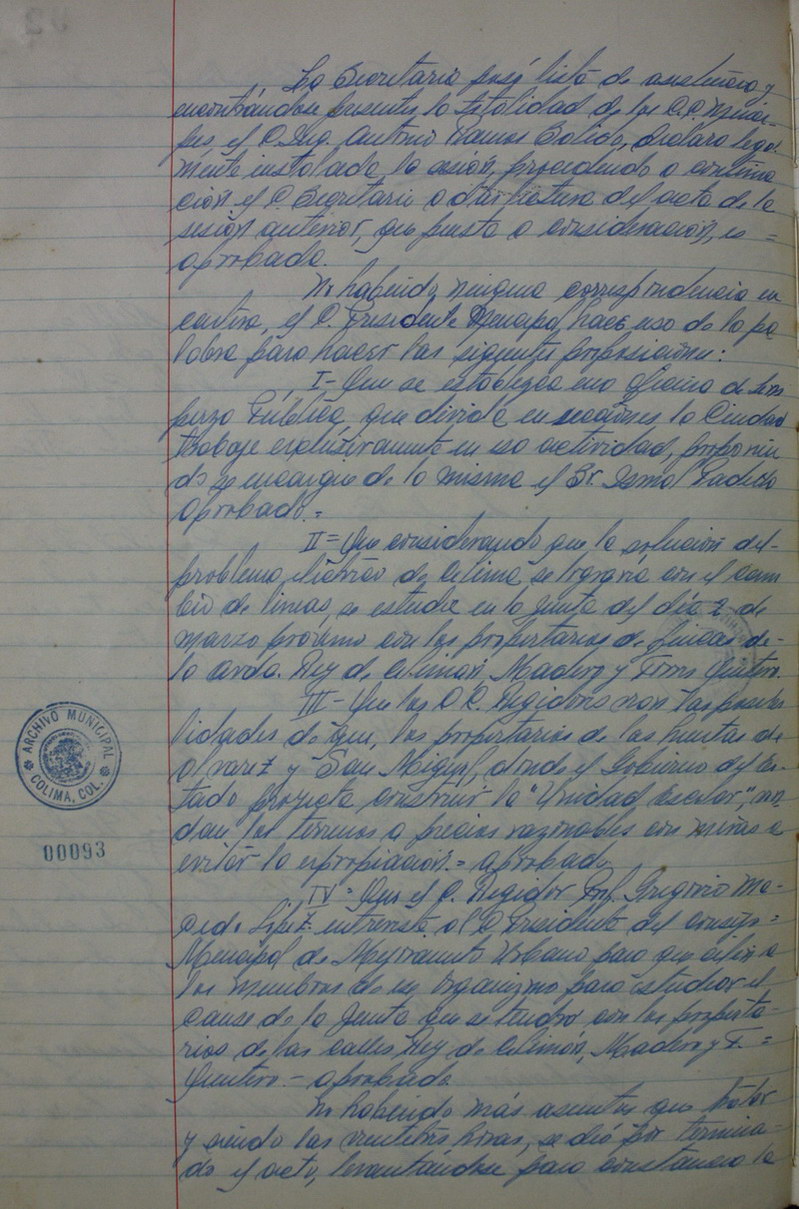 La Secretaría pasó lista de asistencia y
encontrándose presentes la totalidad de los C.C. Muníci-
pes, el C. Ing. Antonio Ramos Salido, declaró legal
mente instalada la sesión, procediendo a continua
ción el C. Secretario a dar lectura del acta de la
sesión anterior, que puesta a consideración, es =
aprobada.
No habiendo ninguna correspondencia en
cartera, el C. Presidente Municipal, hace uso de la pa
labra para hacer las siguientes proposiciones:
I- Que se establezca una oficina de Lim
pieza Pública, que divida en secciones la Ciudad
trabaje exclusivamente en esa actividad, proponien
do se encargue de la misma el Sr. Ismael
aprobado.=
II= Que considerando que la solución del-
problema de Colima se lograría con el cam
bio de líneas, se estudie en la junta del día 2 de
marzo próximo con los propietarios de fincas de-
la avda. Rey de Colimán, Madero y Torres Quintero.
III- Que los C.C. Regidores vean las posibi
lidades de que, los propietarios de las huertas de
Alvarez y San Miguel, donde el Gobierno del Es-
tado proyecta construir la "Unidad Escolar", ven
dan los terrenos a precios razonables con miras a
evitar la expropiación.= aprobado
IV= Que el C. Regidor Prof. Gregorio Ma-
cedo López entreviste al C. Presidente del Consejo=
Municipal de Mejoramiento Urbano para que cite a
los miembros de ese Organismo para estudiar el
cause de la Junta que se tendrá con los propieta-
rios de las calles Rey de Colimán, Madero y T. =
Quintero.- aprobado
No habiendo más asuntos que tratar
y siendo las veintitrés horas, se dió por termina-
do el acto, levantándose para constancia la
ARCHIVO MUNICIPAL
COLIMA, COL.
00093